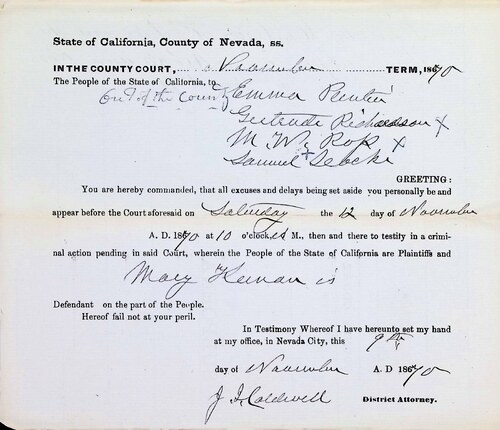 State of California, County of Nevada, ss.
IN THE COUNTY COURT, November TERM, 1870
The People of the State of California, to
Out of the County Emma Pentier
Gertrude Richardson x
M. W. Rop x
Samuel x Slocke
GREETING:
You are hereby commanded, that all excuses and delays being set aside you personally be and
appear before the Court aforesaid on Saturday the 12 day of November
A. D. 1870 at 10 o'clock, A M., then and there to testify in a crimi-
nal action pending in said Court, wherein the People of the State of California are Plaintiffs and
Mary Keenan is
Defendant on the part of the People.
Hereof fail not at your peril.
In Testimony Whereof I have hereunto set my hand
at my office, in Nevada City, this 9th
day of November A. D 1870
J. I. Caldwell District Attorney.